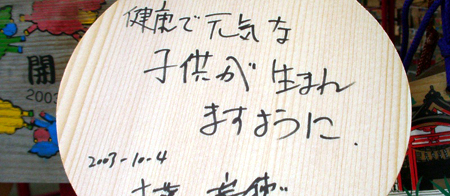 健康で元気な
子供が生まれ
ますように.
2003-10-4
開
2003